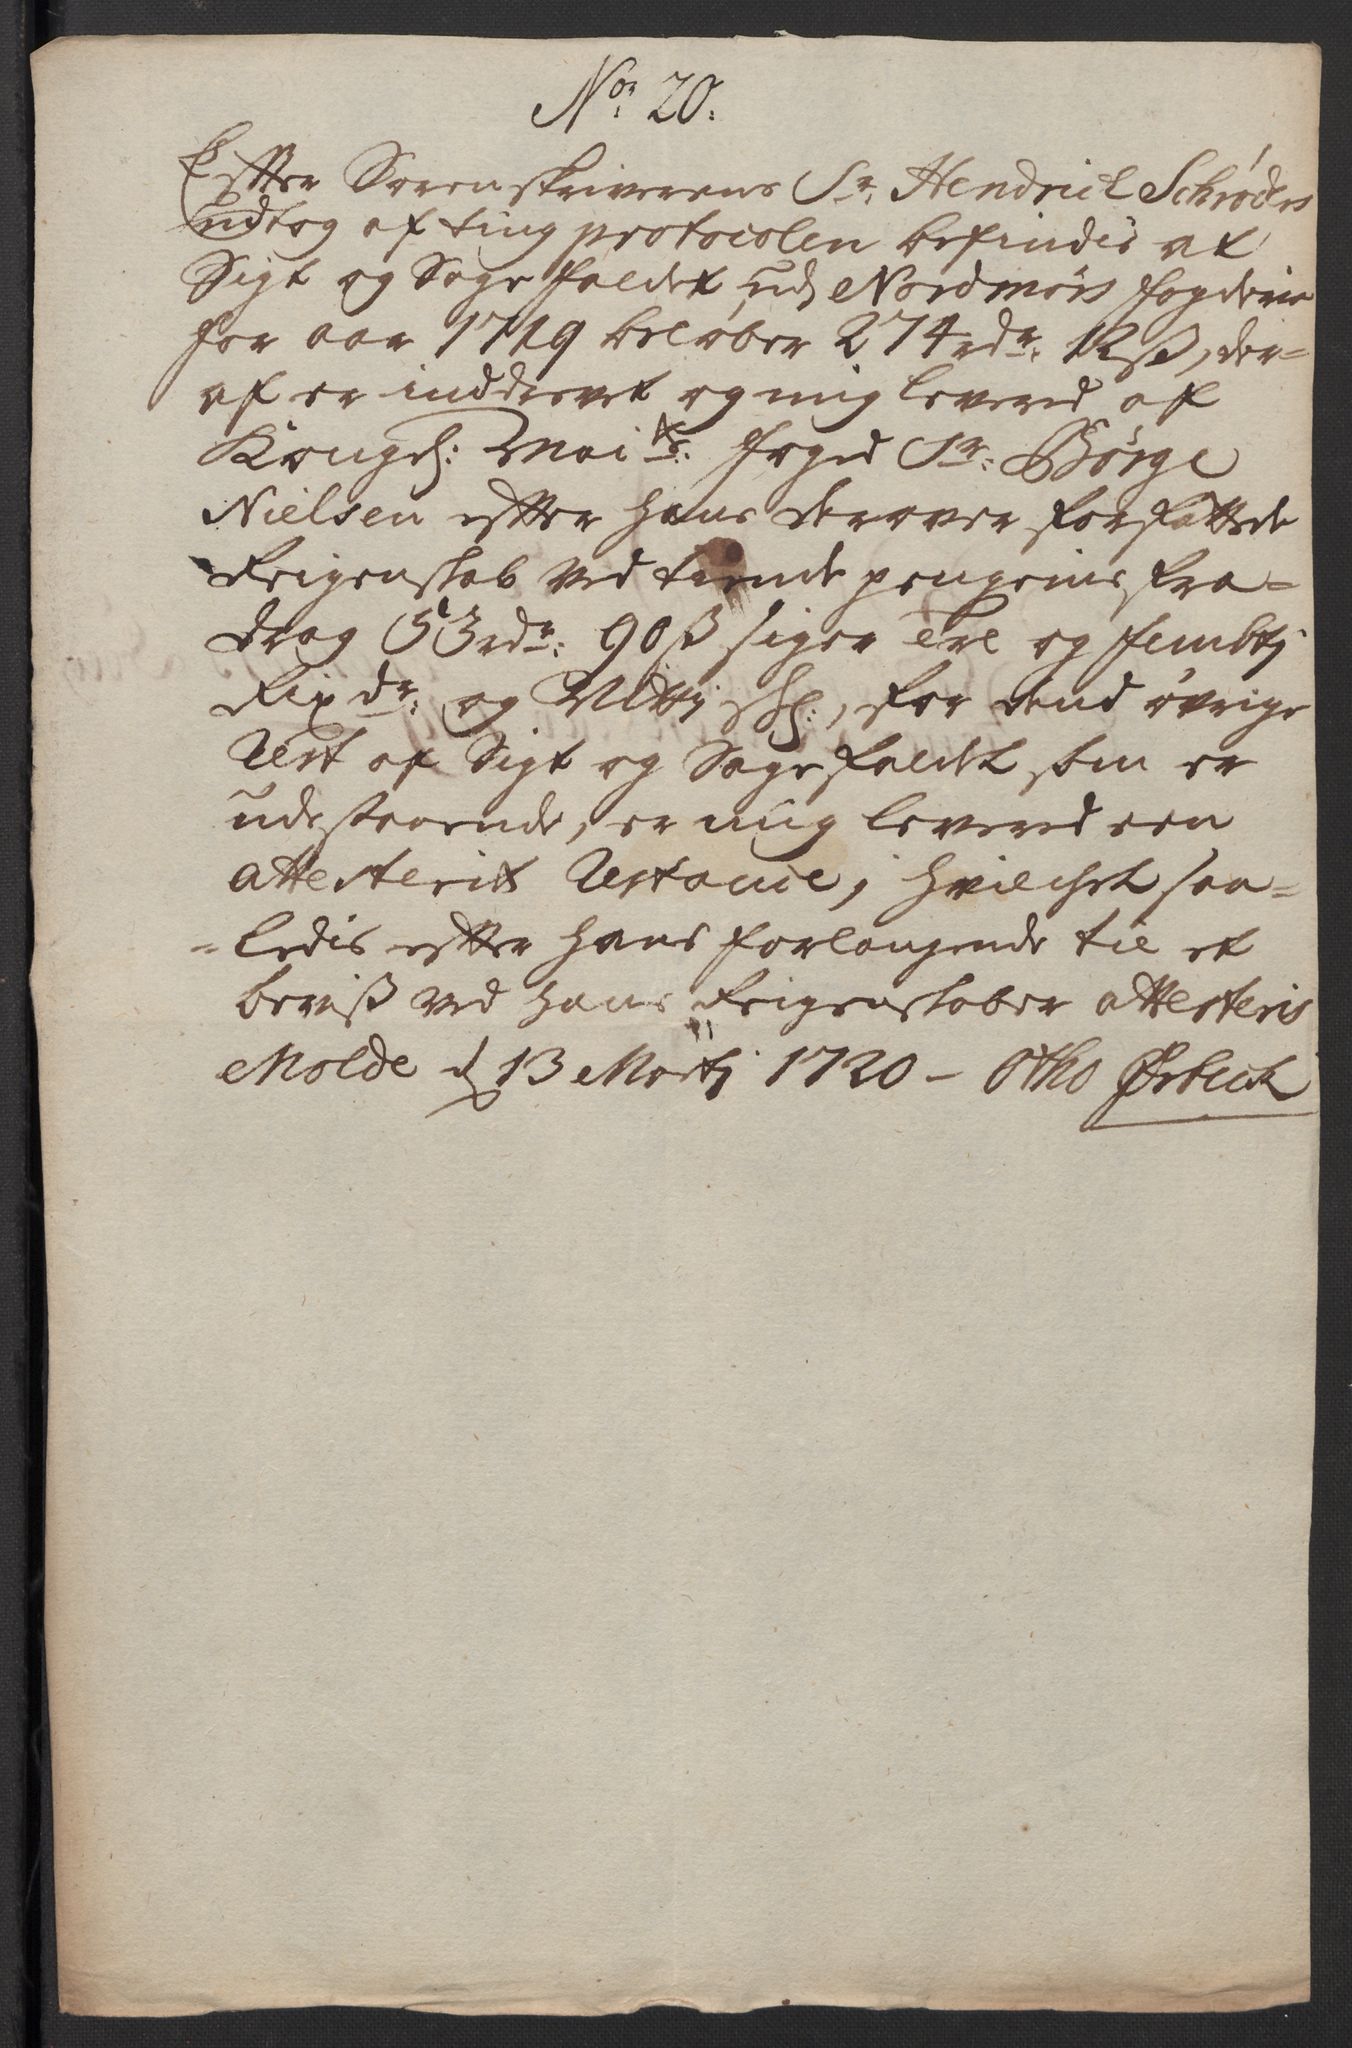 No: 20:
Effter Sorenskriverens Sr: Hendrich Schrøders
udtog af ting protocolen befindis at
Sigt og Sagefaldet udj Nordmørs fogderie
for aar 1719 beløber 274 rdr: 12 ß, der=
af er inddrevet og mig levered af
Kongel: Maits: foged Sr: Børge
Nielsen effter hans derover forfattede
Reigenskab ved tiende pengenis fra=
drag 53 rdr: 90 ß siger tre og fembtj
Rixdr: og Nitti skl:, for dend øvrige
Rest af Sigt og Sagefaldet som er
udestaaende, er mig levered een
attesterit Restance, hvilchet saa=
=ledis effter hans forlangende til et
beviß ved hans Reigenskaber attesteris
Molde d 13 Martj 1720 - Otho Ørbech